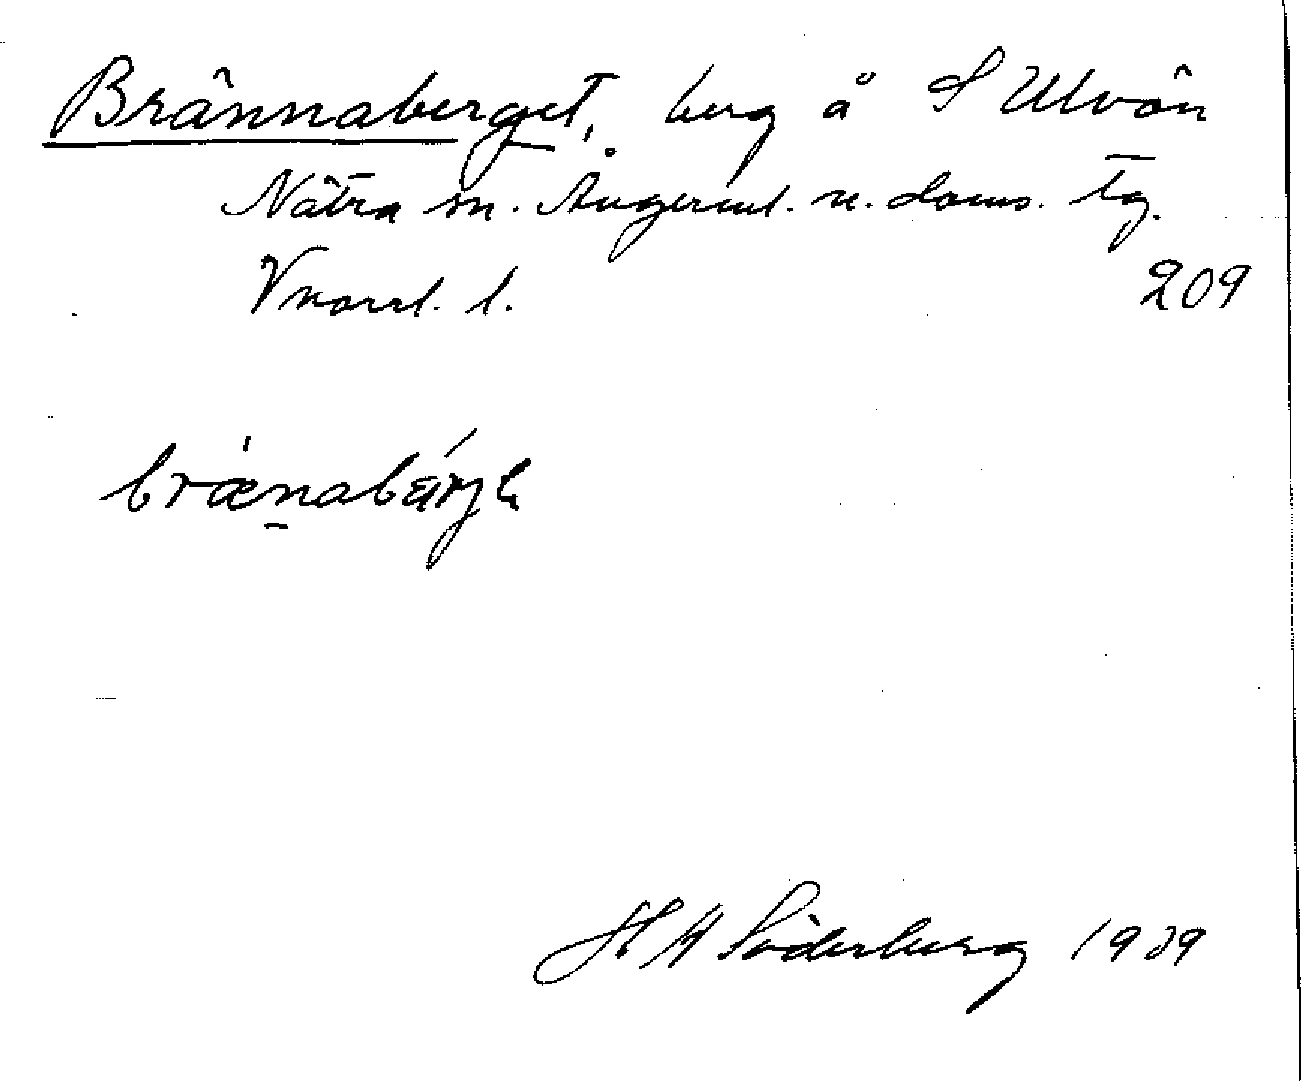 Brännaberget, berg å S Ulvön
Nätra sn. Ångerml. n. doms. tg.
Vnorrl. l. 209
brænabærjɛ
H A Söderberg 1939